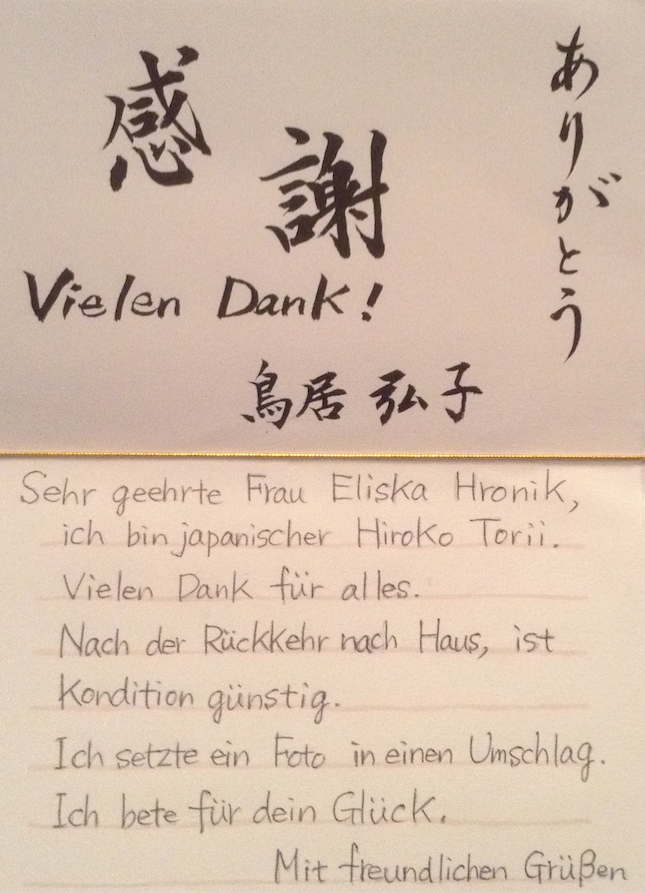 感謝
ありがとう
Vielen Dank!
鳥居 弘子
Sehr geehrte Frau Eliska Hronik,
ich bin japanischer Hiroko Torii.
Vielen Dank für alles.
Nach der Rückkehr nach Haus, ist
Kondition günstig.
Ich setzte ein Foto in einen Umschlag.
Ich bete für dein Glück.
Mit freundlichen Grüßen